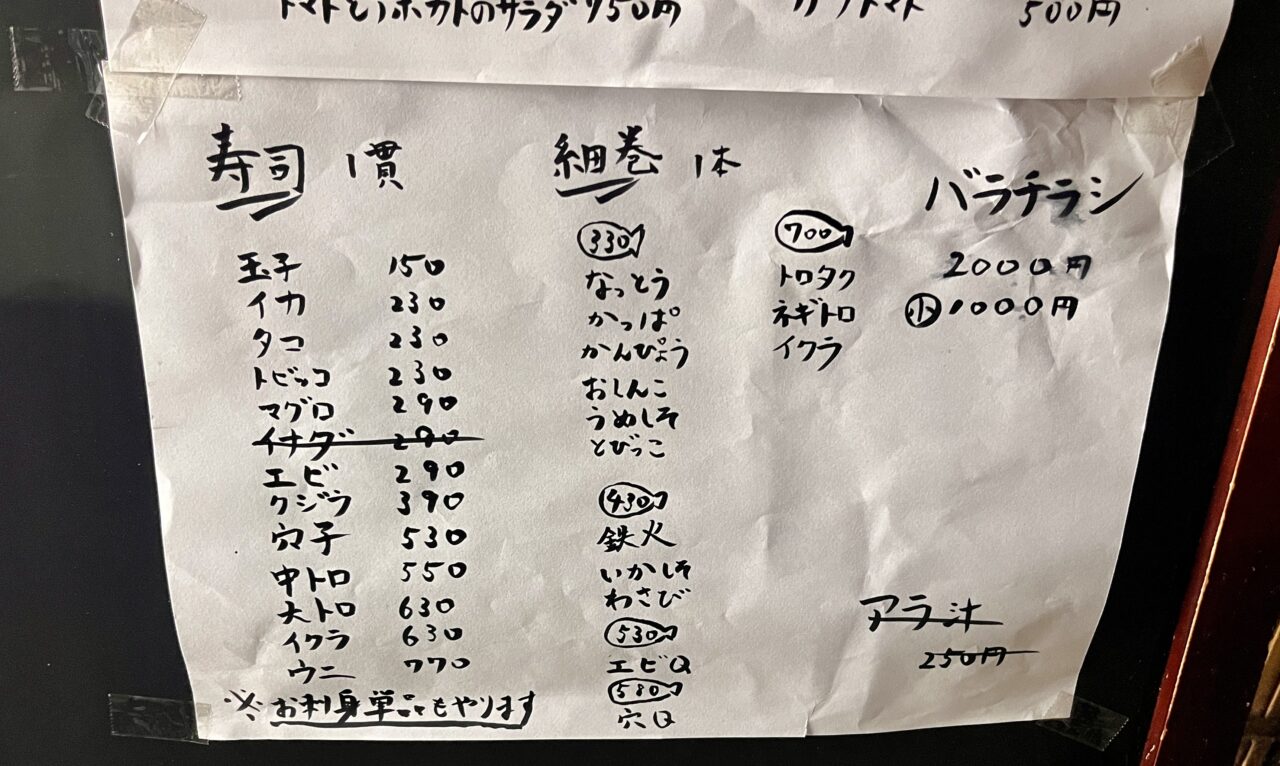 トマトとアボカトのサラダ 950円
500円
寿司 1貫
玉子 150
イカ 230
タコ 230
トビッコ 230
マグロ 290
イナダ 290
エビ 290
クジラ 390
穴子 530
中トロ 550
大トロ 630
イクラ 630
ウニ 770
※お刺身単品もやります
細巻 1本
330
なっとう
かっぱ
かんぴょう
おしんこ
うめしそ
とびっこ
430
鉄火
いかしそ
わさび
530
エビQ
580
穴Q
700
トロタク
ネギトロ
イクラ
バラチラシ
2000円
小 1000円
アラ汁
250円